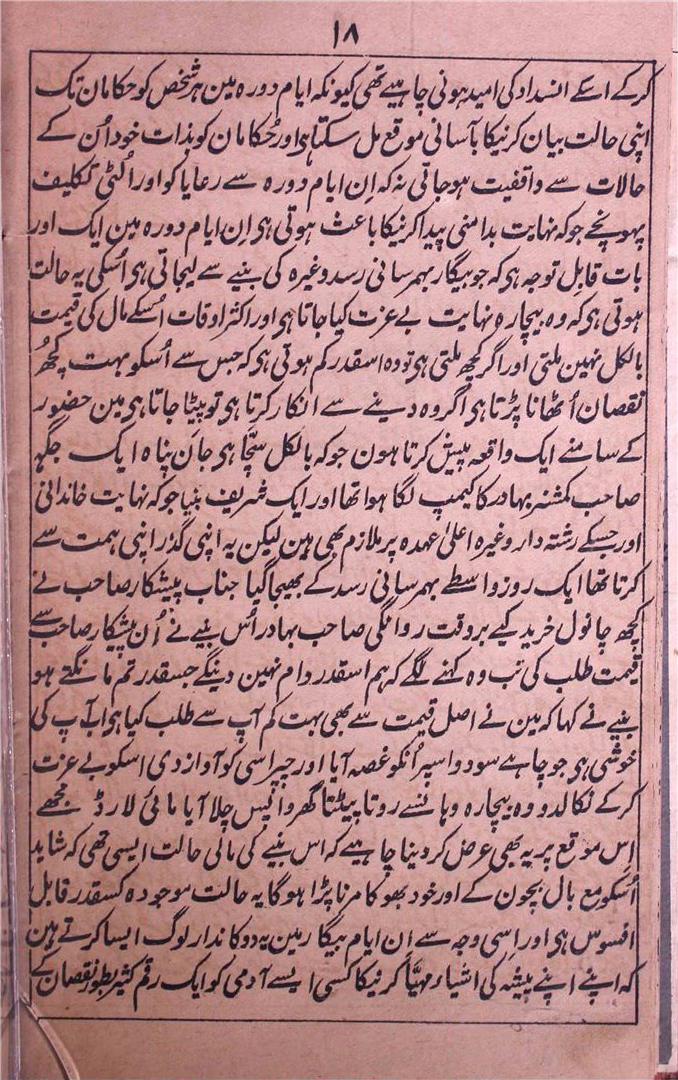 ۱۸
کرکے اسکے انسداد کی امید ہونی چاہیے تھی کیونکہ ایام دورہ مین ہر شخص کو حکامان تک
اپنی حالت بیان کرنیکا بآسانی موقع مل سکتا ہی اور حُکامان کو بذات خود اُن کے
حالات سے واقفیت ہوجاتی نہ کہ اِن ایام دورہ سے رعایا کو اور اُلٹی تکلیف
پہونچے جوکہ نہایت بدامنی پیدا کرنیکا باعث ہوتی ہی اِن ایام دورہ مین ایک اور
بات قابل توجہ ہی کہ جو بیگار بہمرسانی رسد وغیرہ کی بنیے سے لیجاتی ہی اُسکی یہ حالت
ہوتی ہی کہ وہ بیچارہ نہایت بے عزت کیا جاتا ہی اور اکثر اوقات اُسکے مال کی قیمت
بالکل نہین ملتی اور اگر کچھ ملتی ہی تو وہ اسقدر کم ہوتی ہی کہ جس سے اُسکو بہت کچھُ
نقصان اُٹھانا پڑتا ہی اگر وہ دینے سے انکار کرتا ہی تو پیٹا جاتا ہی مین حضور
کے سامنے ایک واقعہ پیش کرتا ہون جوکہ بالکل سچّا ہی جان پناہ ایک جگہ
صاحب کمشنر بہادر کا کیمپ لگا ہوا تھا اور ایک شریف بنیا جوکہ نہایت خاندانی
اور جسکے رشتہ دار وغیرہ اعلیٰ عہدہ پر ملازم بھی ہین لیکن یہ اپنی گذر اپنی ہمت سے
کرتا تھا ایک روز واسطے بہمرسانی رسد کے بھیجا گیا جناب پیشکار صاحب نے
کچھ چانول خرید کیے بروقت روانگی صاحب بہادر اُس بنیے نے اُن پیشکار صاحب سے
قیمت طلب کی تب وہ کہنے لگے کہ ہم اسقدر دام نہین دینگے جسقدر تم مانگتے ہو
بنیے نے کہا کہ مین نے اصل قیمت سے بھی بہت کم آپ سے طلب کیا ہی اب آپ کی
خوشی ہی جو چاہے سو دو اسپر اُنکو غصہ آیا اور چپراسی کو آواز دی اسکو بے عزت
کرکے نکالدو وہ بیچارہ وہانسے روتا پیٹتا گھر واپس چلا آیا مائی لارڈ مجھے
اِس موقع پر یہ بھی عرض کردینا چاہیے کہ اس بنیے کی مالی حالت ایسی تھی کہ شاید
اُسکو مع بال بچون کے اور خود بھوکا مرنا پڑا ہوگا یہ حالت موجودہ کسقدر قابل
افسوس ہی اور اِسی وجہ سے اِن ایام بیگار مین یہ دوکاندار لوگ ایسا کرتے ہین
کہ اپنے اپنے پیشہ کی اشیاء مہیّا کرنیکا کسی ایسے آدمی کو ایک رقم کثیر بطور نقصان کے